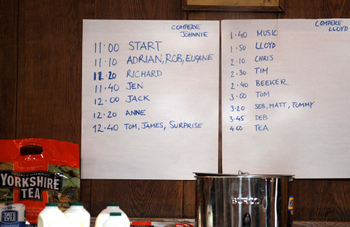 COMPERE
JOHNNIE
11.00 START
11.10 ADRIAN, ROB, EUGENE
11.20 RICHARD
11.40 JEN
12.00 JACK
12.20 ANNE
12.40 TOM, JAMES, SURPRISE
COMPERE
LLOYD
1.40 MUSIC
1.50 LLOYD
2.10 CHRIS
2.30 TIM
2.40 BEEKER
3.00 TOM
3.20 SEB, MATT, TOMMY
3.45 DEB
4.00 TEA
YORKSHIRE
TEA